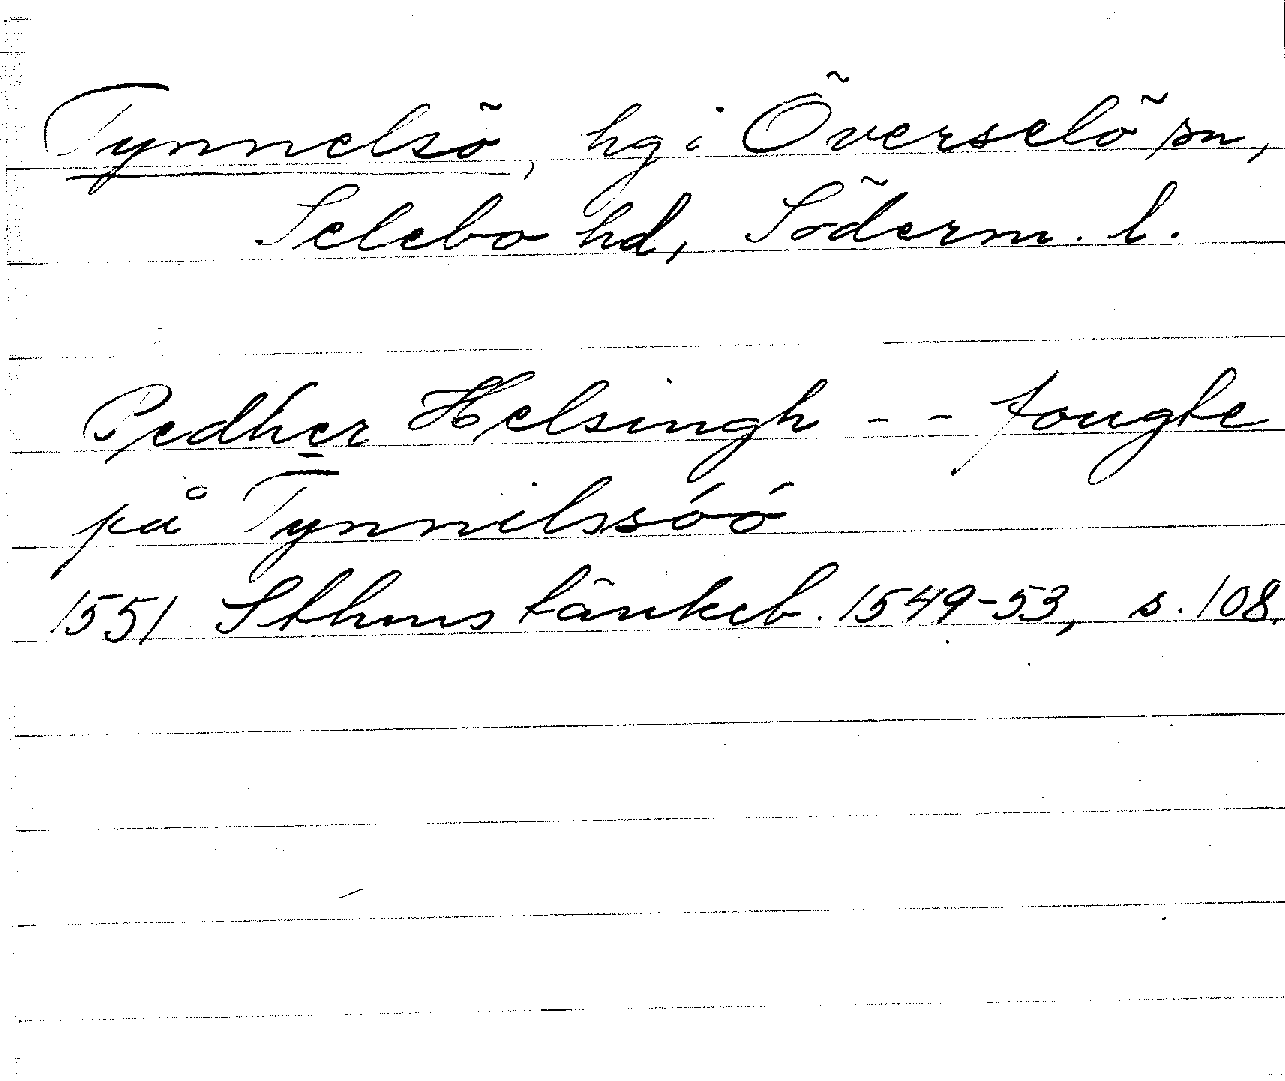 Tynnelsö, hg i Överselö sn,
Selebo hd, Söderm. l.
Pedher Helsingh - - fougte
på Tynnilssóó
1551 Sthms tänkeb. 1549-53, s. 108.